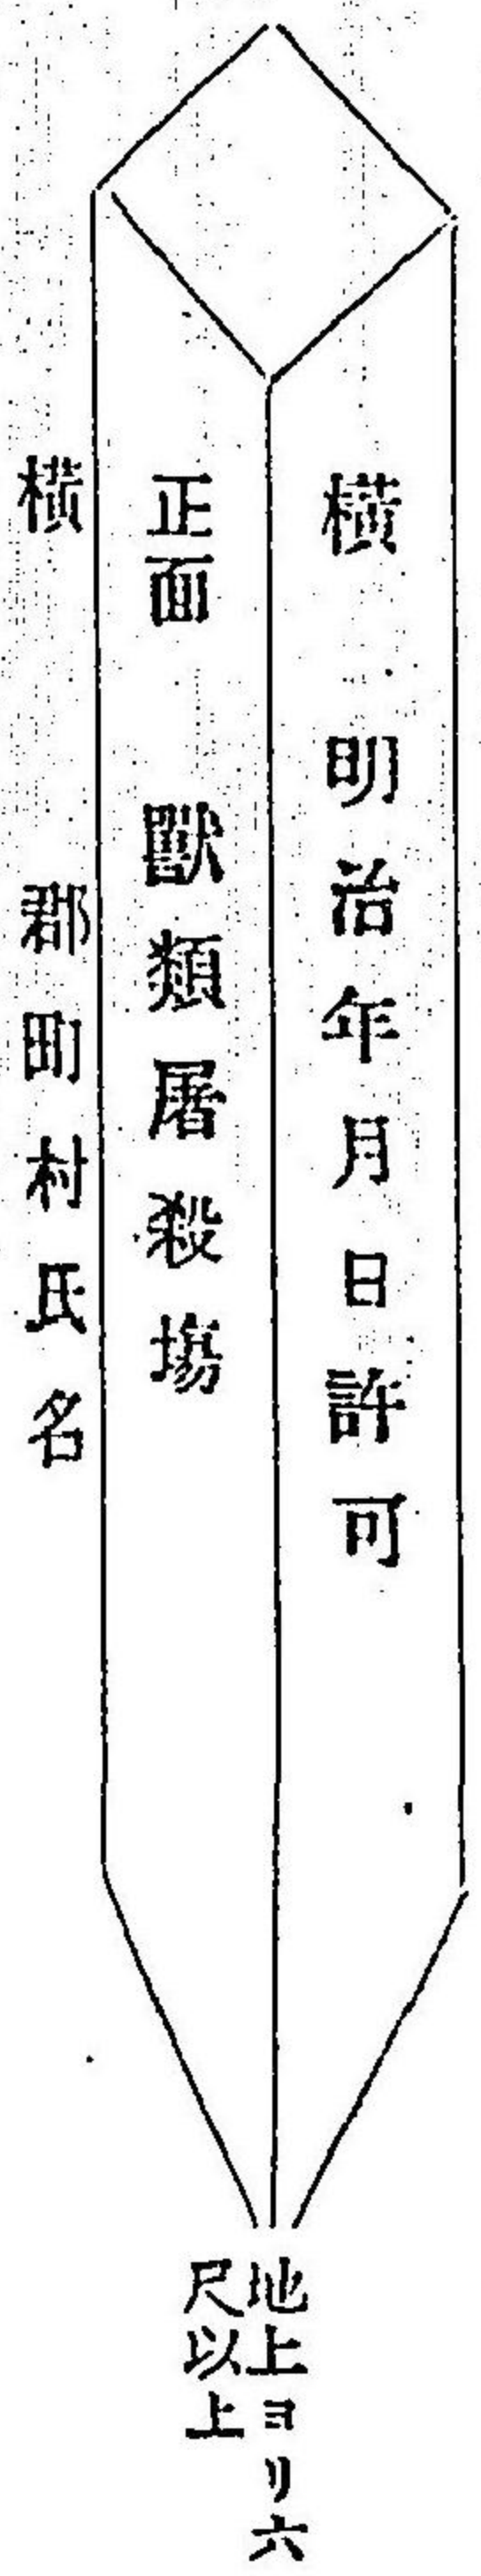 橫 明治年月日許可
正面 獸類屠殺塲
橫 郡町村氏名
地上ヨリ六
尺以上